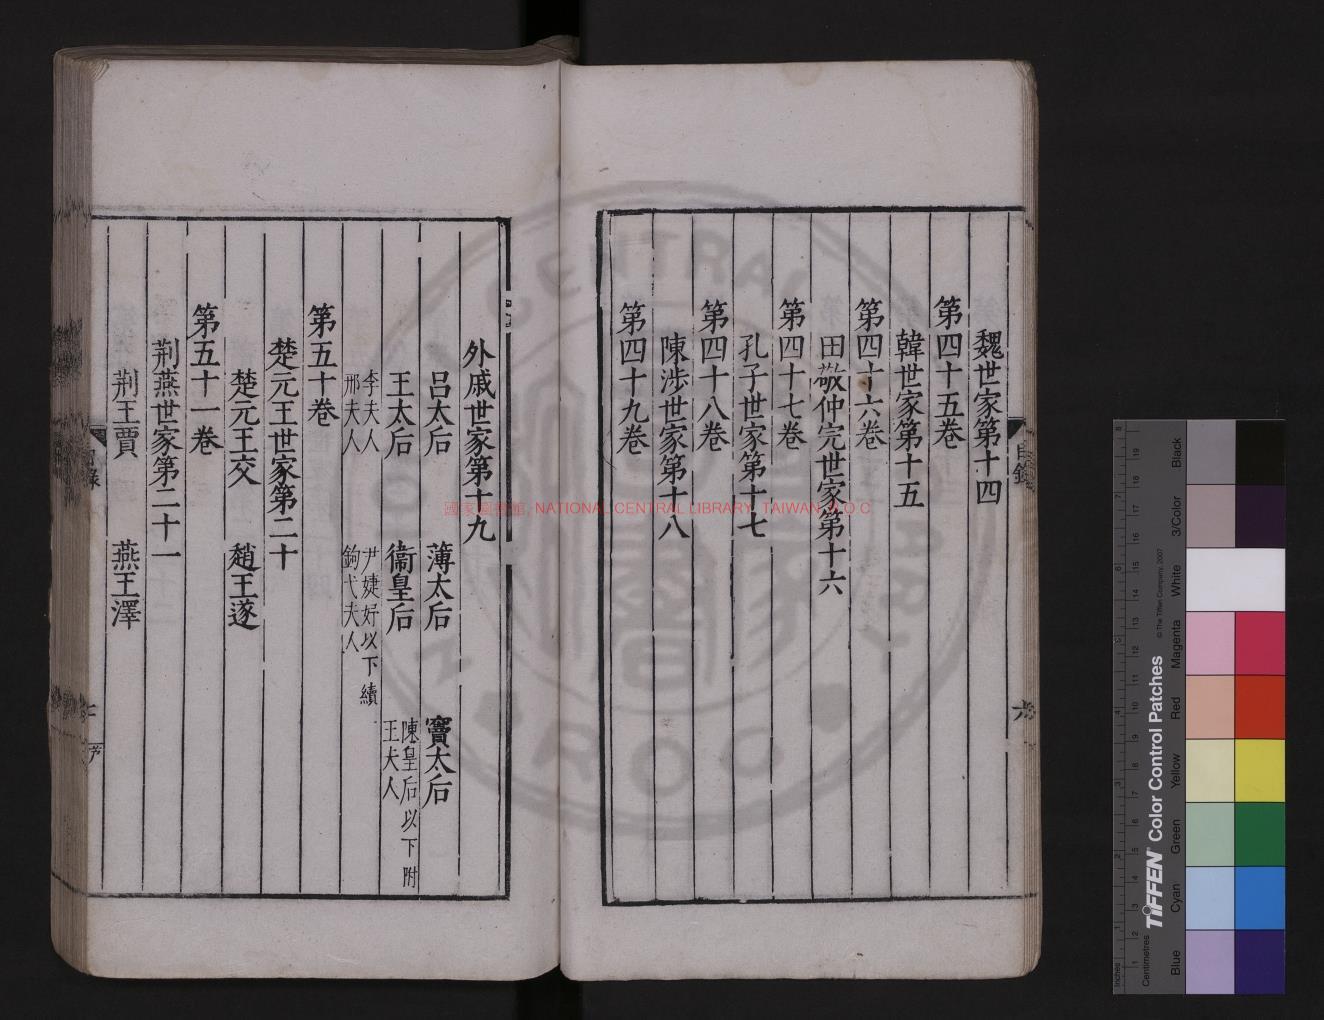 魏世家第十四
第四十五卷
韓世家第十五
第四十六卷
田敬仲完世家第十六
第四十七卷
孔子世家第十七
第四十八卷
陳涉世家第十八
第四十九卷
目錄
六
外戚世家第十九
呂太后 薄太后 竇太后
王太后 衞皇后 陳皇后以下附
王夫人
李夫人 尹婕妤以下續
邢夫人 鉤弋夫人
第五十卷
楚元王世家第二十
楚元王交 趙王遂
第五十一卷
荆燕世家第二十一
荆王賈 燕王澤
目錄
國家圖書館, NATIONAL CENTRAL LIBRARY, TAIWAN, R.O.C
TIFFEN Color Control Patches
© The Tiffen Company, 2007
Inches
Centimetres
Blue
Cyan
Green
Yellow
Red
Magenta
White
3/Color
Black